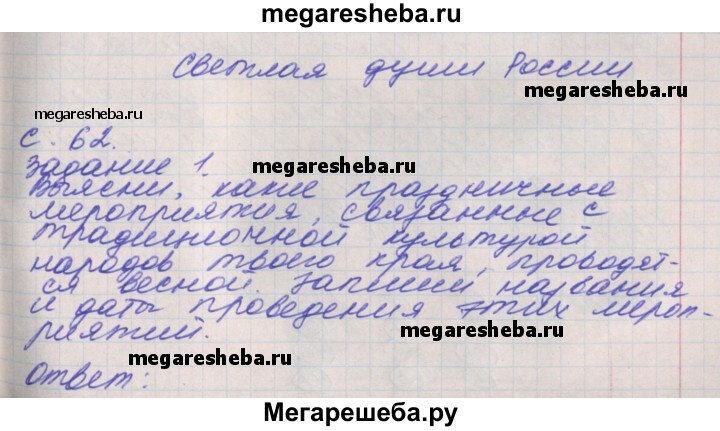 megaresheba.ru
Светлая души России
megaresheba.ru
megaresheba.ru
с. 62.
Задание 1.
megaresheba.ru
Выясни, какие праздничные
мероприятия, связанные с
традиционной культурой
народов твоего края, проводят-
ся весной. Запиши названия
и даты проведения этих мероп-
риятий.
megaresheba.ru
megaresheba.ru
Ответ:
Мегарешеба.ру